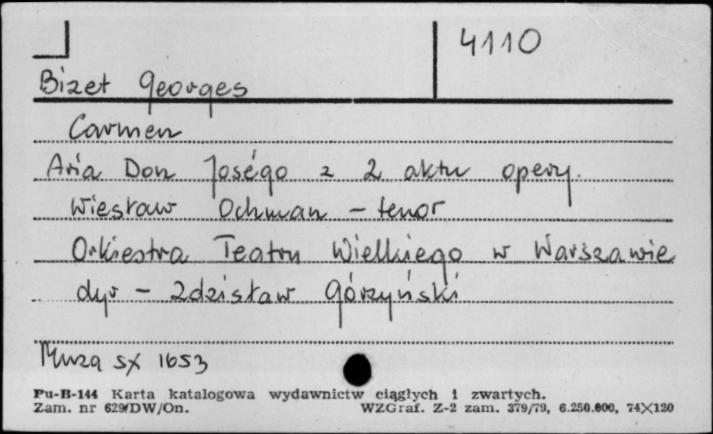 4110
Bizet Georges
Carmen
Aria Don Joségo z 2 aktu opery.
Wiesław Ochman - tenor
Orkiestra Teatru Wielkiego w Warszawie
dyr - Zdzisław Górzyński
Muza SX 1653
Pu-B-144 Karta katalogowa wydawnictw ciągłych i zwartych.
Zam. nr 629/DW/On. WZGraf. Z-2 zam. 379/79, 6.250.000, 74×120